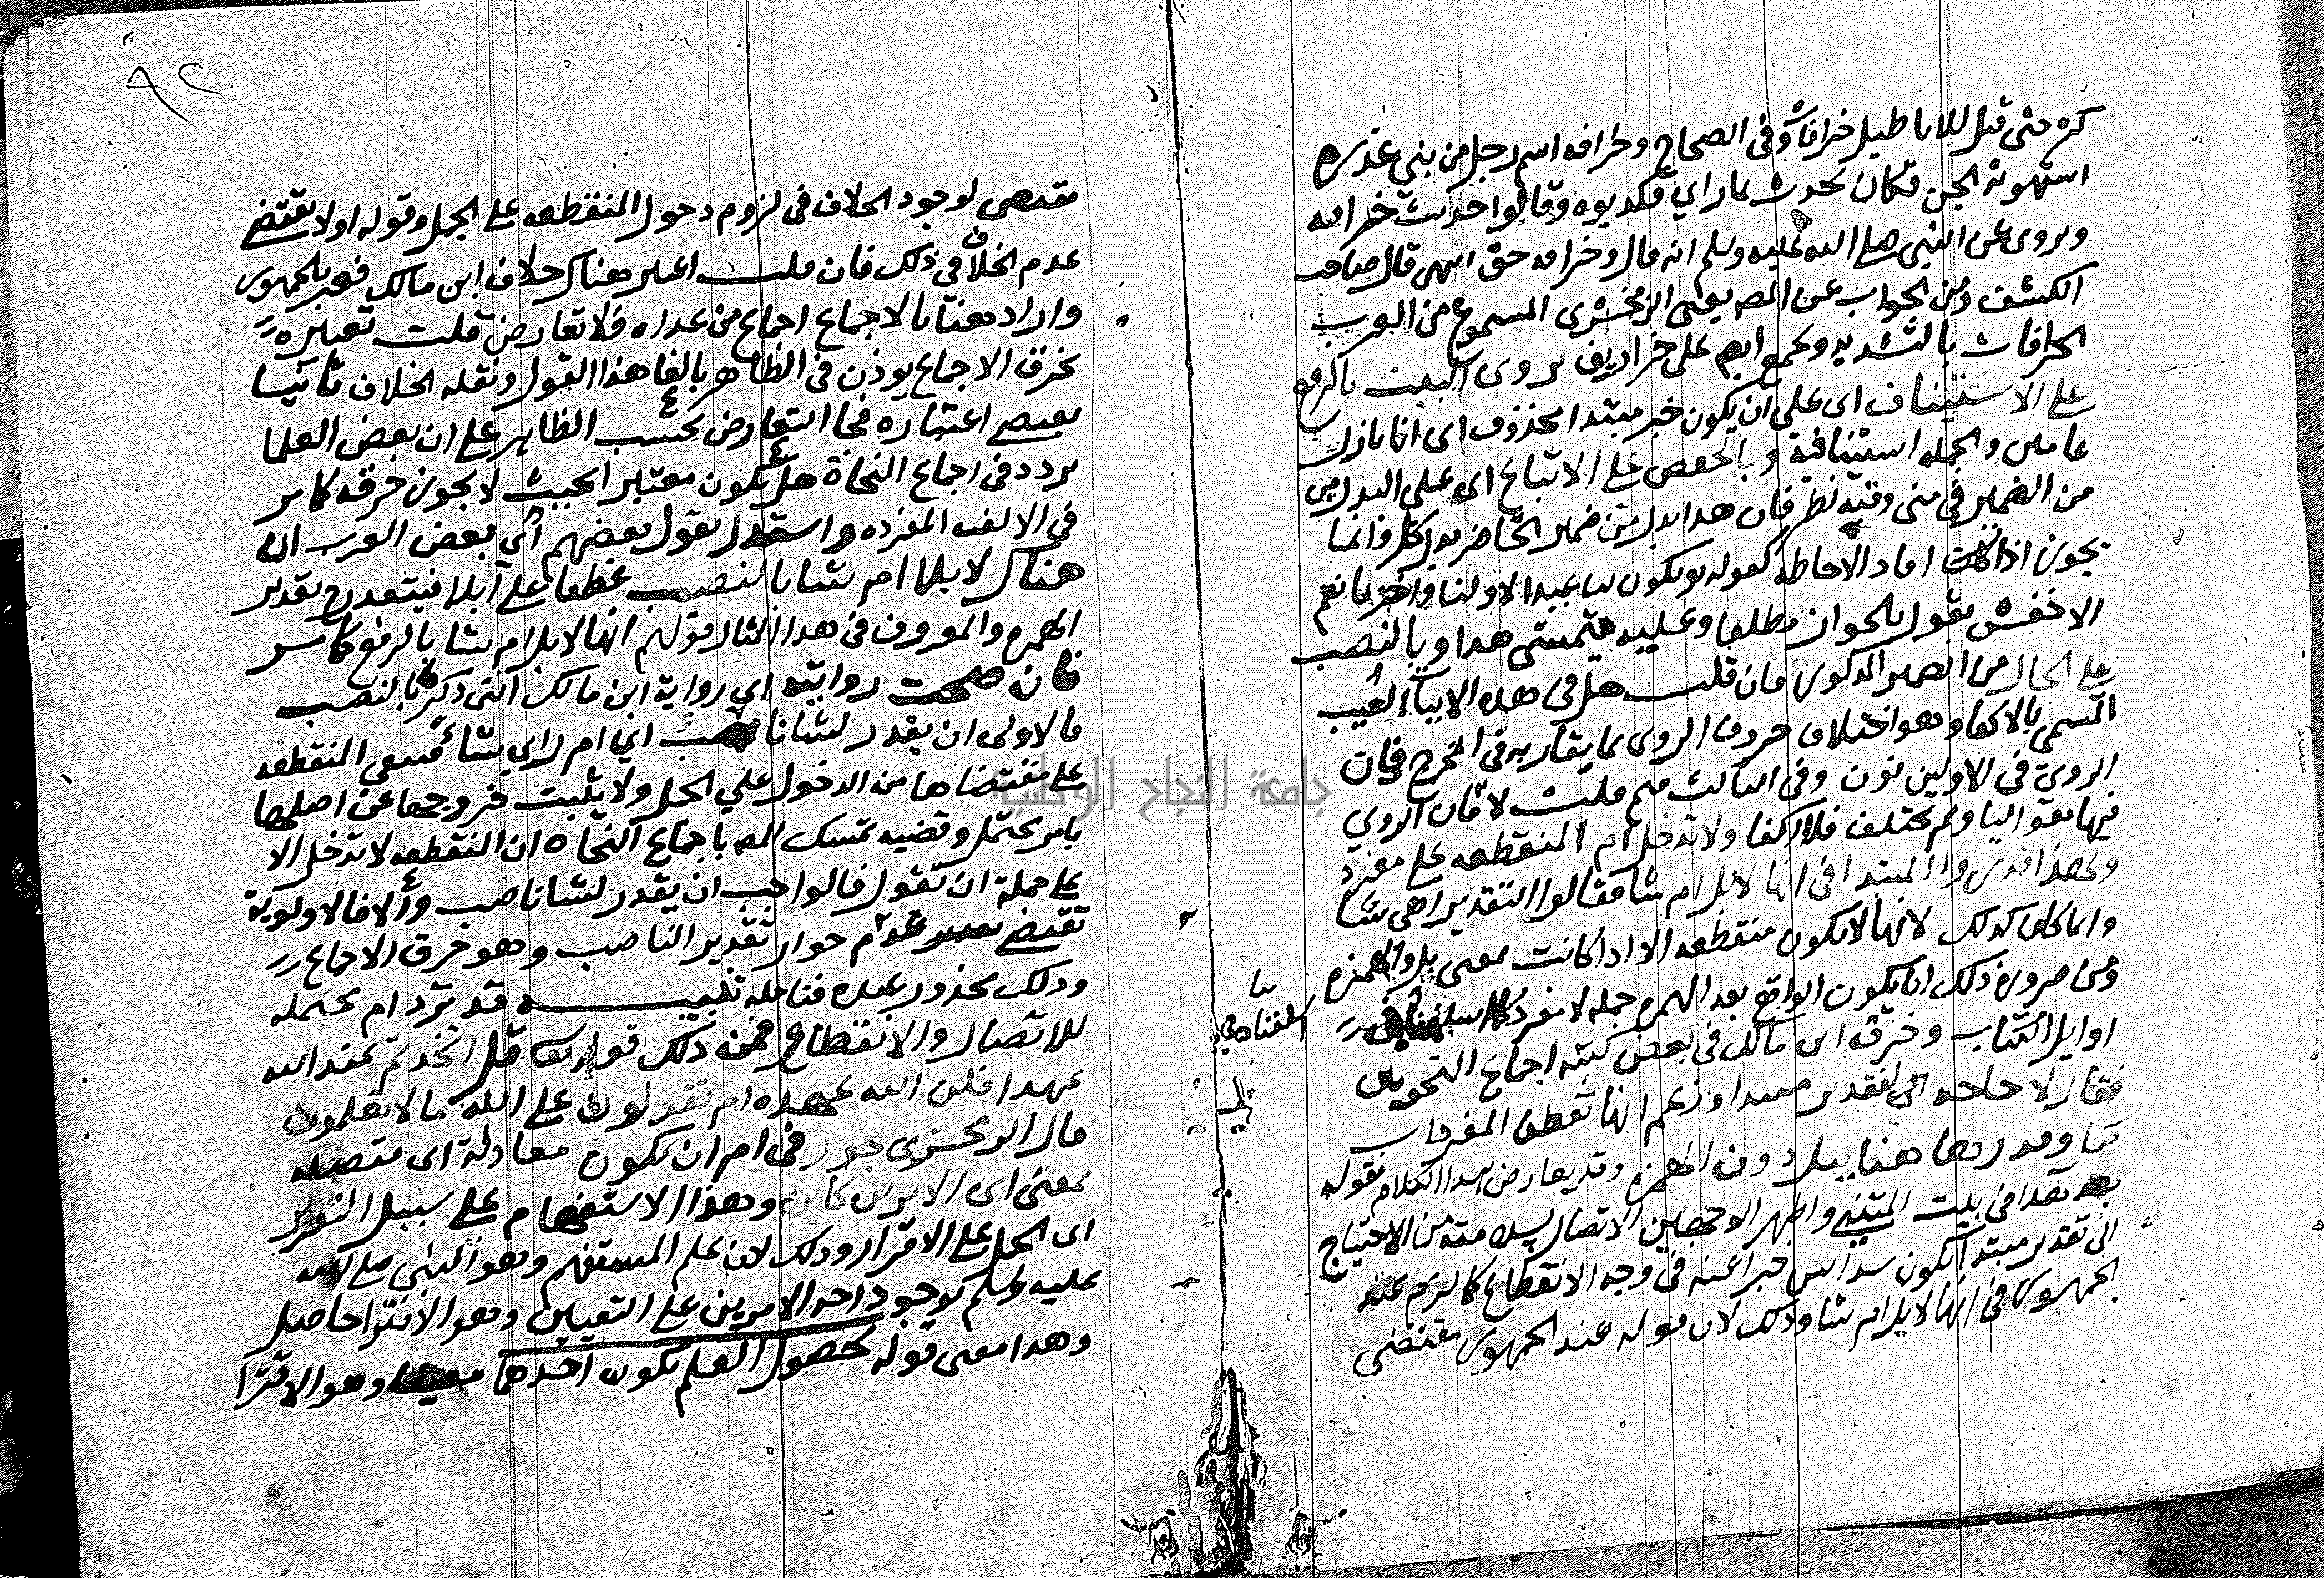 كره حتى قيل للاباطيل خرافات وفى الصحاح وخرافه اسم رجل من بني عذره
استهوته الجن فكان يحدث بما راي فكذبوه وقالوا حديث خرافه
ويروى عن النبي صلى الله عليه وسلم انه قال وخرافه حق انتهى قال صاحب
الكشف ومن الجواب عن المصه يعنى الزمخشرى المسموع من العرب
الخرافات بالتشديد ويجمع ايض على خراريف يروى البيت بالرفع
على الاستيناف اى على ان يكون خبر مبتدا محذوف اى انا بازل
عامين والجمله استينافية وبالخفض على الاتباع اى على البدل من
من الضمير في منى وفيه نظر فان هذا بدل من ضمير الحاضر بدل كل وانما
يجوز اذا كانت افاد الاحاطه كقوله تع تكون لنا عيدا لاولنا واخرنا نعم
الاخفش يقول بالجواز مطلقا وعليه فتمشى هذا وبالنصب
على الحال من الضمير المذكور فان قلت هل فى هذه الابيات العيب
المسمى بالاكفا وهو اختلاف حروف الروى بما يقاربه في المخرج فان
الروي فى الاولين نون وفى الثالث ميم قلت لا فان الروي
فيها هو اليا ولم يختلف فلا اكفا ولا تدخل ام المنقطعه على مفرد
ولهذا قدروا المبتدا فى انها لابل ام شا فقالوا التقدير اهى شا
وانما كان كذلك لانها لا تكون منقطعه الا اذا كانت بمعنى بل والهمزه
ومن ضرورة ذلك ان يكون الواقع بعد الهمزه جمله لا مفرد
اوايل الكتاب وخرق ابن مالك فى بعض كتبه اجماع النحويين
فقال لا حاجه الى تقدير مبتدا وزعم انها تعطف المفردات
كبل وقدرها هنا ببل دون الهمزه وقد يعارض هذا الكلام بقوله
بعد هذا فى بيت المتنبي واظهر الوجهين الاتصال لسلامته من الاحتياج
الى تقدير مبتدا يكون سداس خبرا عنه فى وجه الانقطاع كما لزم عند
الجمهور فى انها لابل ام شا وذلك لان قوله عند الجمهور مقتضى
٩٢
مقتضى لوجود الخلاف فى لزوم دخول المنقطعه على الجمل وقوله اولا يقتضى
عدم الخلاف في ذلك فان قلت اعتبر هناك خلاف ابن مالك فعبر بالجمهور
واراد هنا بالاجماع اجماع من عداه فلا تعارض قلت تعبيره
بخرق الاجماع يوذن فى الظاهر بالغا هذا القول ونقله الخلاف ثانيا
يقتضى اعتباره فجا التعارض بحسب الظاهر على ان بعض العلما
يردد فى اجماع النحاة هل يكون معتبرا بحيث لا يجوز خرقه كما مر
في الالف المفرده واستدل بقول بعضهم اى بعض العرب ان
هناك لابلا ام شا بالنصب عطفا على ابلا فيتعذر ح تقدير
الهمزه والمعروف في هذا المثال قولهم انها لابل ام شا بالرفع كما مر
فان صحت روايته اي رواية ابن مالك التى ذكرها بالنصب
فالاولى ان يقدر لشا ناصب اي ام اراي شاء فتبقى المنقطعه
على مقتضاها من الدخول على الجمل ولا يثبت خروجها عن اصلها
بامر محتمل وقضيه تمسك المصه باجماع النحاه ان المنقطعه لا تدخل الا
على جملة ان تقول فالواجب ان يقدر لشا ناصب والا فالاولوية
تقتضى عدم جواز تقدير الناصب وهو خرق الاجماع
وذلك محذور عنده فتامله تنبيـــه قد ترد ام محتمله
للاتصال والانقطاع فمن ذلك قوله تعا قل اتخذتم عند الله
عهدا فلن يخلف الله عهده ام تقولون على الله ما لا تعلمون
قال الزمخشرى يجوز فى ام ان تكون معادلة اى متصله
بمعنى اى الامرين كاين وهذا الاستفهام على سبيل التقرير
اى الحمل على الاقرار وذلك لان علم المستفهم وهو النبى صلى الله
عليه وسلم بوجود احد الامرين على التعيين وهو الافترا حاصل
وهذا معنى قوله لحصول العلم بكون احدهما وهو الافترا
جامعة النجاح الوطنية